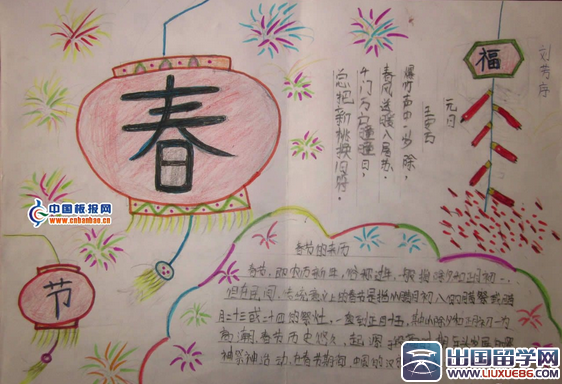 春
节
福
刘芳序
元日
王安石
爆竹声中一岁除，
春风送暖入屠苏。
千门万户曈曈日，
总把新桃换旧符。
春节的来历
春节，即农历新年，俗称过年，一般指除夕和正月初一。
但在民间，传统意义上的春节是指从腊月初八的腊祭或腊
月二十三或二十四的祭灶，一直到正月十五，其中以除夕和正月初一为
高潮。春节历史悠久，起源
在春节期间，中国的汉
中国板报网
www.cnbanbao.cn
出国留学网
www.liuxue86.com